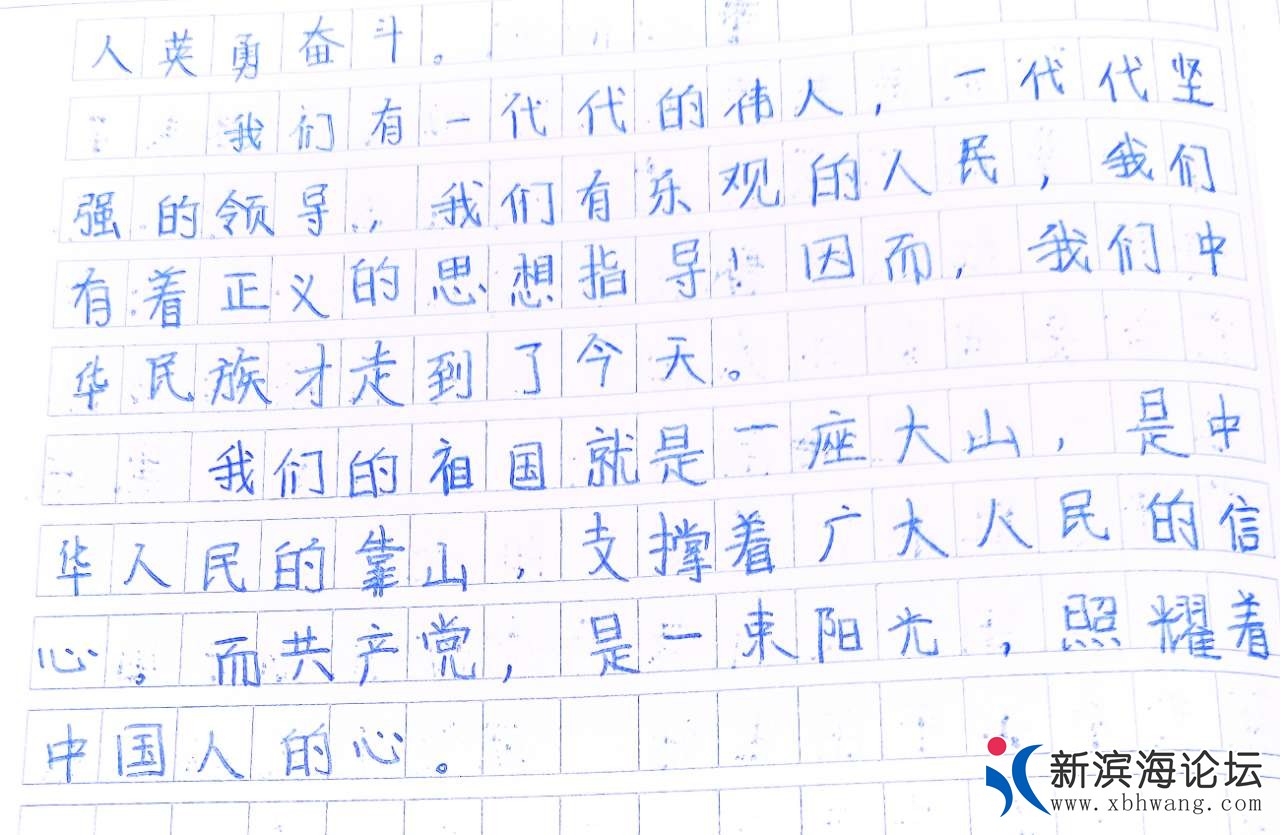 人英勇奋斗。
我们有一代代的伟人，一代代坚
强的领导，我们有乐观的人民，我们
有着正义的思想指导！因而，我们中
华民族才走到了今天。
我们的祖国就是一座大山，是中
华人民的靠山，支撑着广大人民的信
心。而共产党，是一束阳光，照耀着
中国人的心。
新滨海论坛
www.xbhwang.com